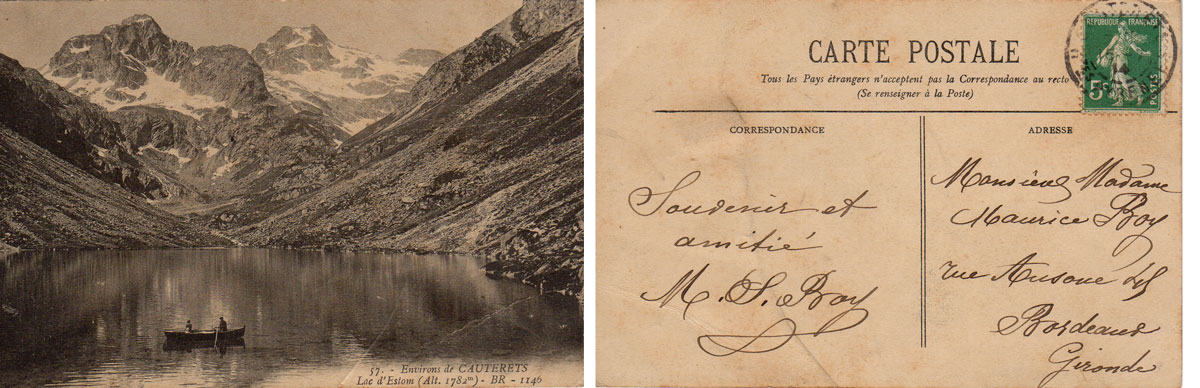 57. - Environs de CAUTERETS
Lac d'Estom (Alt. 1782m) - BR - 1146
CARTE POSTALE
Tous les Pays étrangers n'acceptent pas la Correspondance au recto
(Se renseigner à la Poste)
REPUBLIQUE FRANÇAISE
5c
POSTES
CORRESPONDANCE
Souvenir et
amitié
M. S. Roy
ADRESSE
Monsieur Madame
Maurice Roy
rue Ausone 45
Bordeaux
Gironde